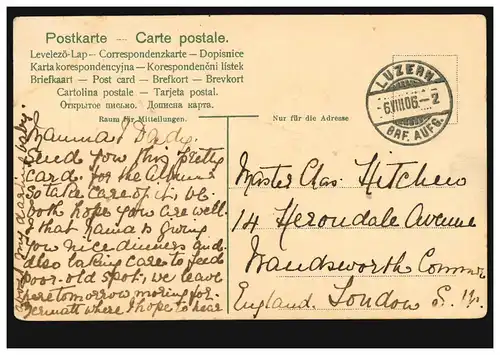 Postkarte – Carte postale.
Levelező-Lap – Correspondenzkarte – Dopisnice
Karta korespondencyjna – Korespondenční lístek
Briefkaart – Post card – Brefkort – Brevkort
Cartolina postale – Tarjeta postal.
Открытое письмо. Дописна карта.
Raum für Mitteilungen.
Nur für die Adresse
LUZERN
6.VIII.06.–2
BRF. AUFG.
Mamma & Dady.
Send you this pretty
card. for the Album
so take care of it, we
both hope you are well.
& that Nana is giving
you nice dinners and
also taking care to feed
poor old spot, we leave
here tomorrow morning for
Zermatt where I hope to hear
my darling baby.
Master Chas. Hitchen
14 Herondale Avenue
Wandsworth Common
England. London S. W.